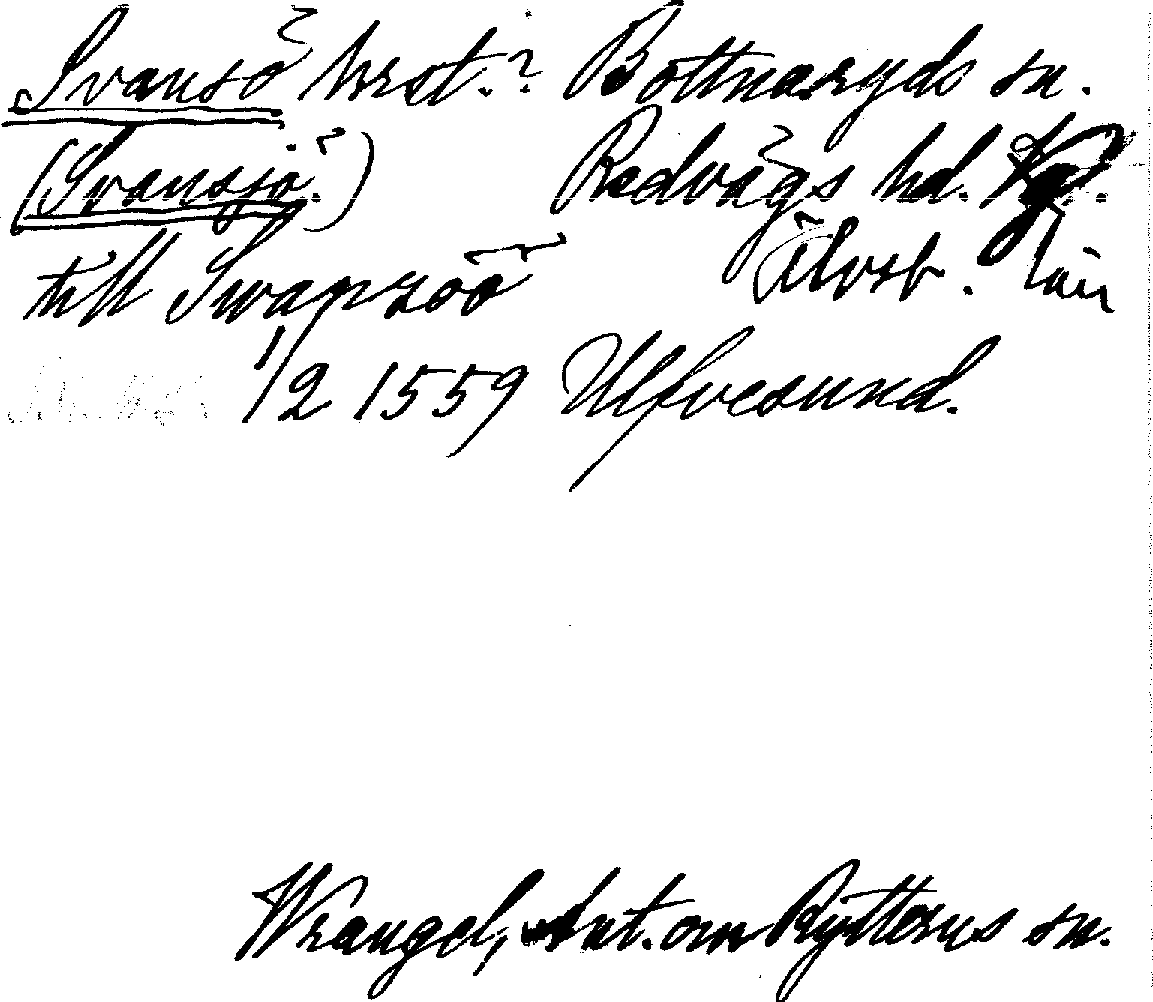 Svansö hrst.? Bottnaryds sn.
(Svansjö?) Redvägs hd.
till Swanzöö Älvsb. län
1/2 1559 Ulfvesund.
Wrangel, Ant. om Rytterns sn.